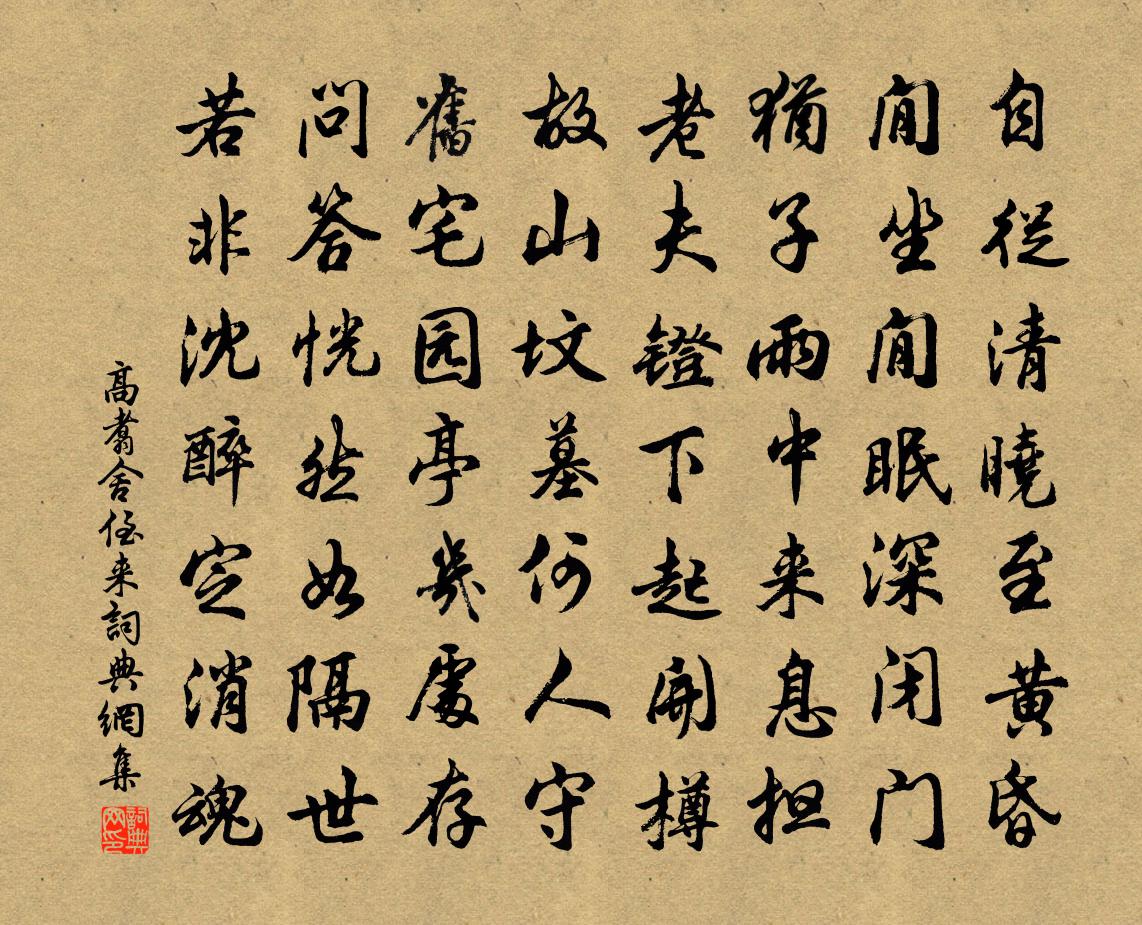 自從清曉至黄昏
閒坐閒眠深闭门
猶子雨中来息担
老夫鐙下起開樽
故山坟墓何人守
舊宅园亭幾處存
問答恍然如隔世
若非沈醉定消魂
高翥舍侄来詞典網集
詞典网印